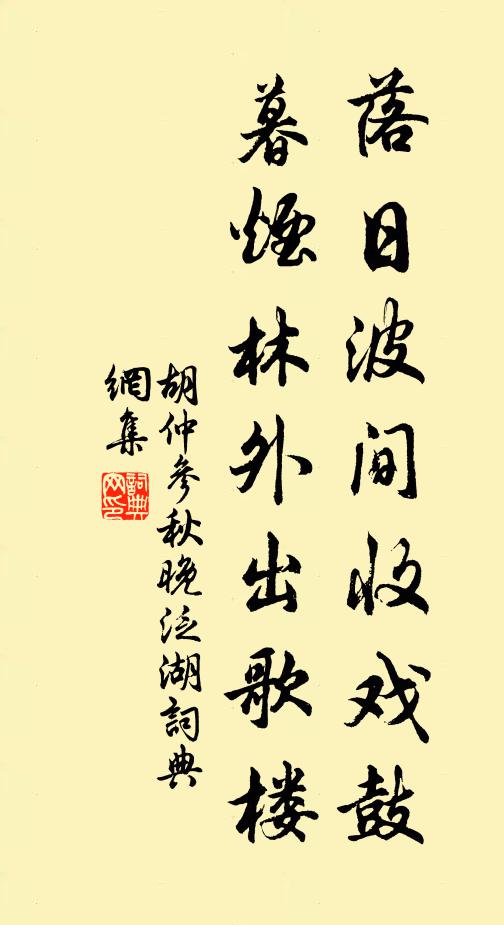 落日波间收戏鼓
暮烟林外出歌楼
胡仲参秋晚泛湖詞典
網集
詞典
网印